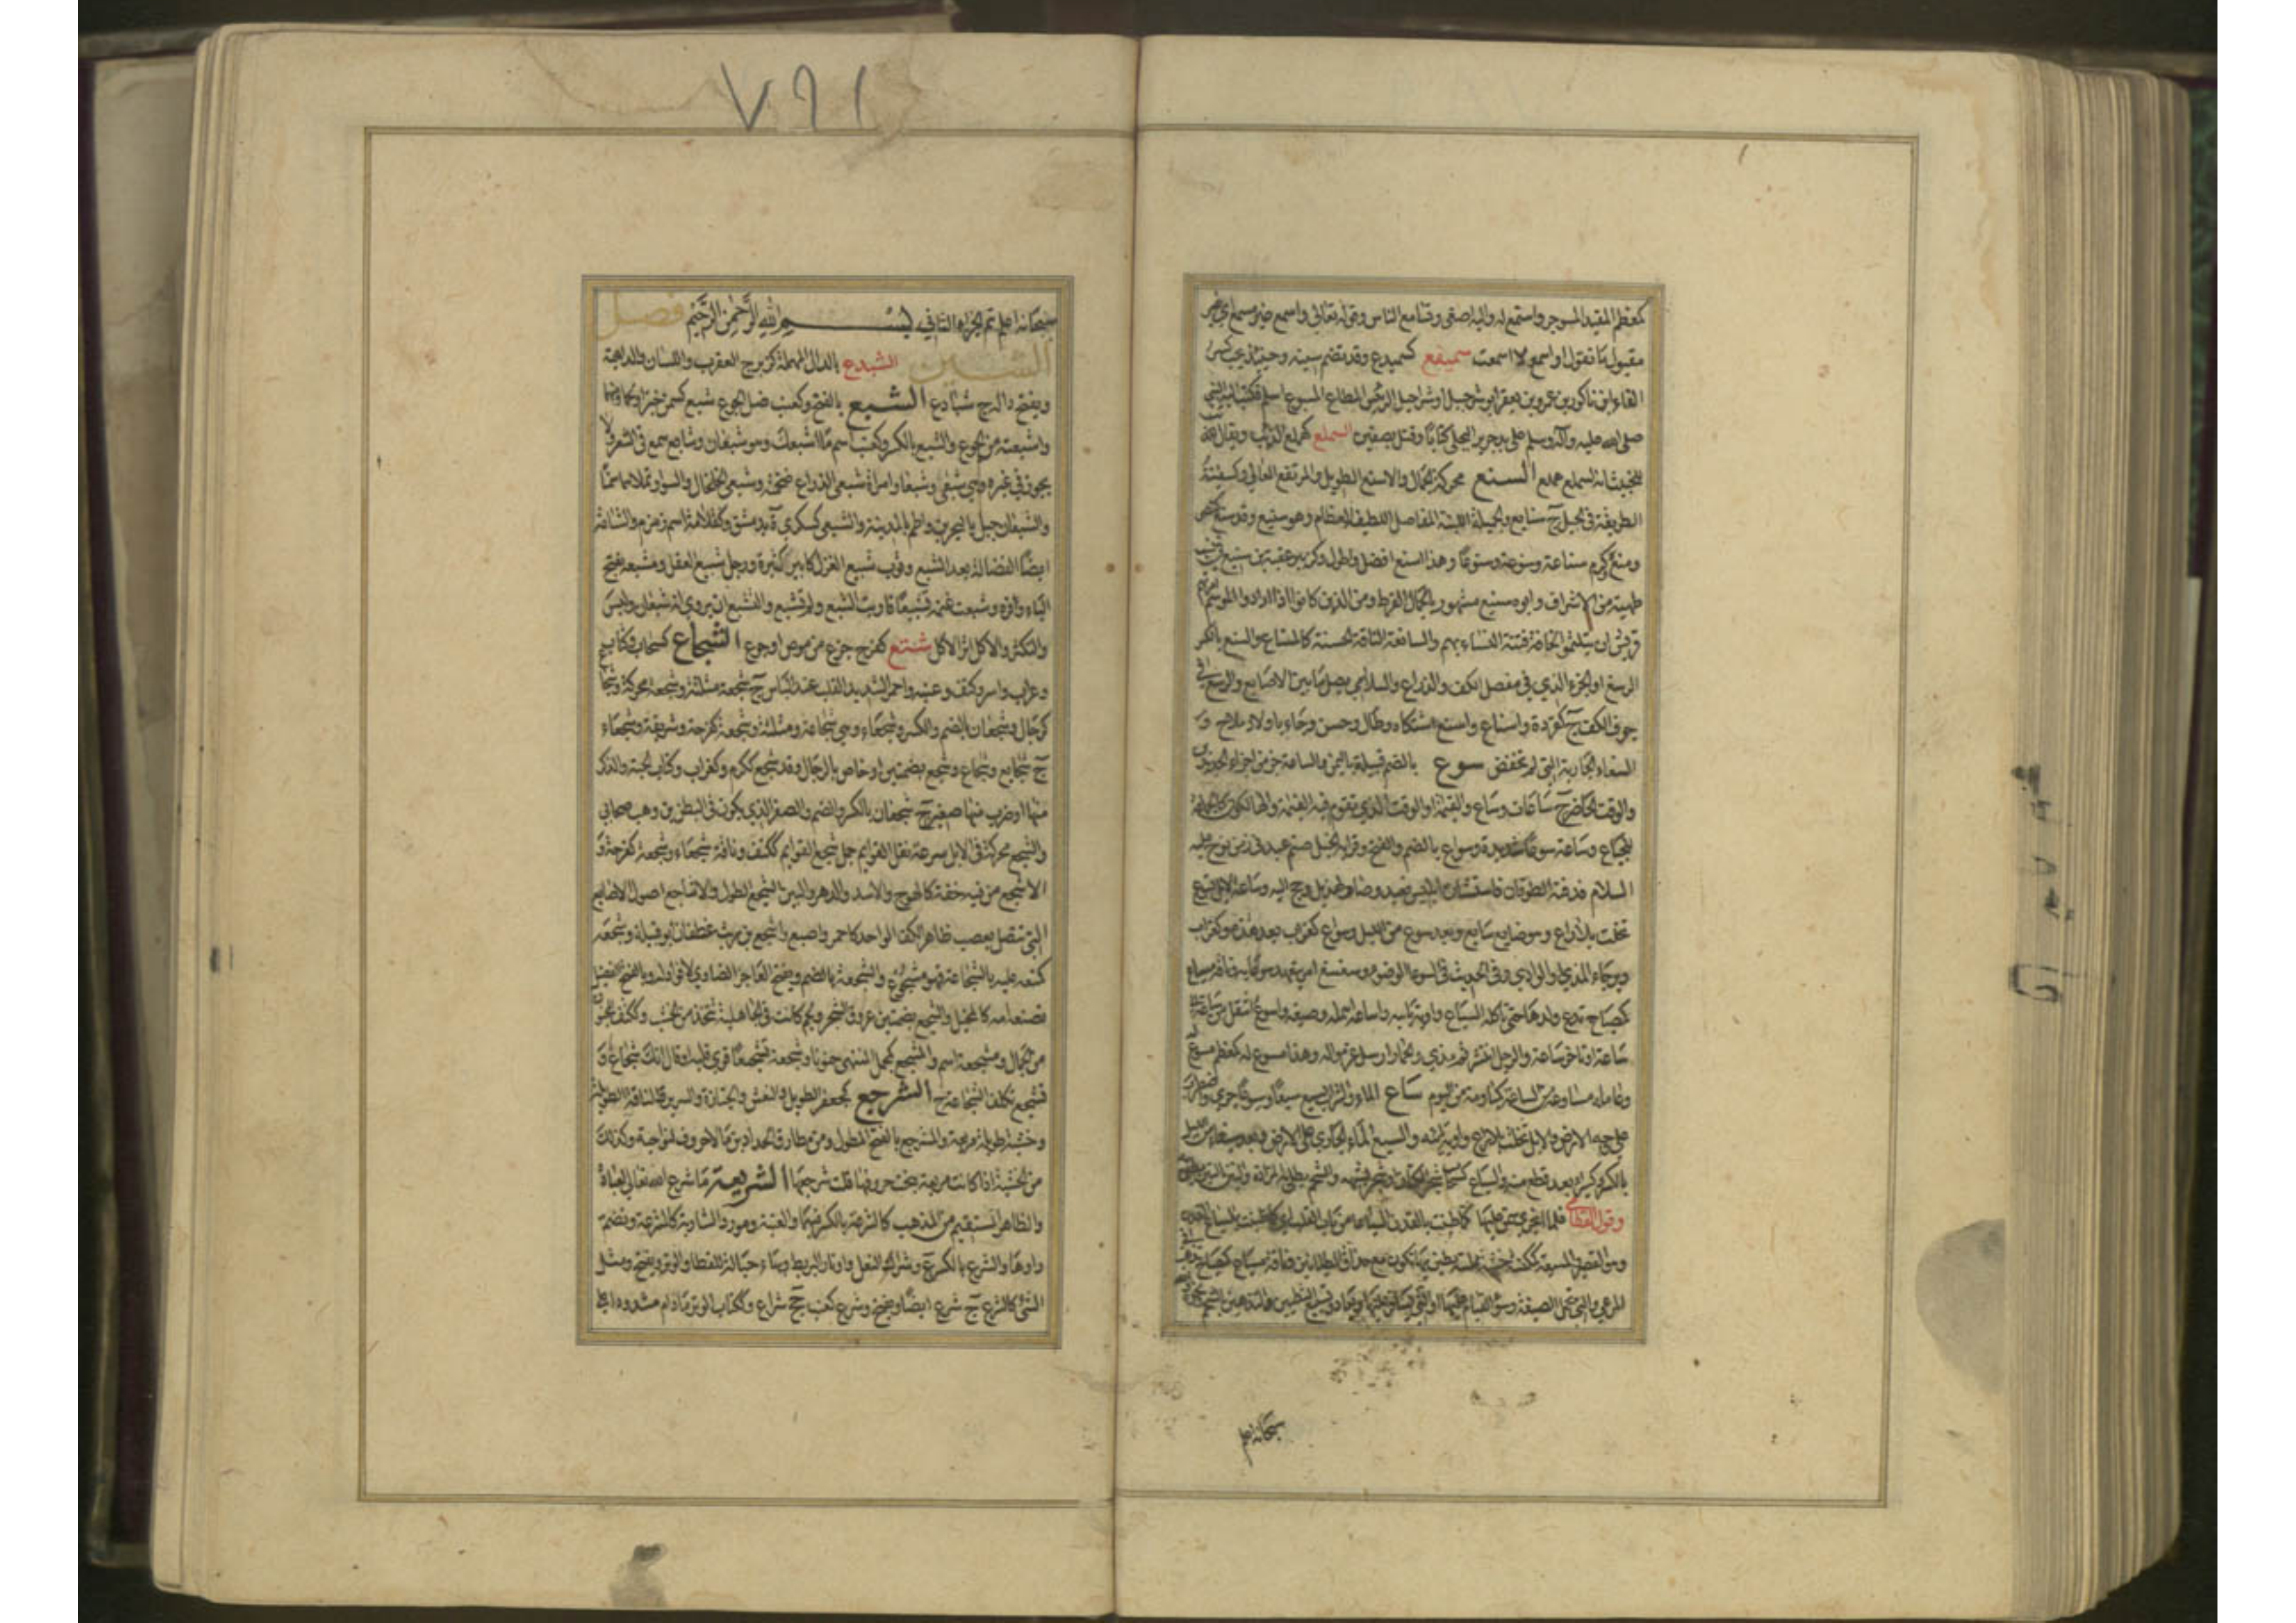 كمعظم المقيد المسوجر واستمع له واليه اصغى وتسامع الناس وقوله تعالى واسمع غير مسمع اي غير
مقبول ما تقول او اسمع لا اسمعت سميفع كسميدع وقد تضم سينه وحينئذ يجب كسر
الفاء ابن ناكور بن عمرو بن يعفر ابو شرحبيل او شراحيل الرئيس المطاع المتبوع اسلم فكتب اليه النبي
صلى الله عليه وآله وسلم على يد جرير البجلي كتابا وقتل بصفين السملع كهملع الذئب ويقال
للخبيث انه لسملع هملع السنع محركة الجمال والاسنع الطويل والمرتفع العالي وكسفينة
الطريقة في الجبل ج سنايع والجميلة اللينة المفاصل اللطيفة العظام وهو سنيع وقد سنع
ومنع وكرم سناعة وسنوعة وسنوعا وهذا اسنع افضل واطول وكزبير عقبة بن سنيع
طهية من الاشراف وابوه سنيع مشهور بالجمال المفرط ومن الذين كانوا اذا ارادوا الموسم
قريش ان يتلثموا مخافة فتنة النساء بهم والسانعة الناقة الحسنة كالمسناع والسنع بالكسر
الرسغ او الحز الذي في مفصل الكف والذراع والسلامى يصل ما بين الاصابع والرسغ في
جوف الكف ج كقردة واسناع واسنع اشتكاه وطال وحسن وجاء باولاد ملاح و
السنعاء الجارية التي لم تخفض سوع بالضم قبيلة باليمن والساعة جزء من اجزاء الجديدين
والوقت الحاضر ج ساعات وساع والقيمة او الوقت الذي تقوم فيه القيمة والهالكون كالجاعة
للجياع وساعة سوعاء شديدة وسواع بالضم والفتح وقرا به الخليل صنم عبد في زمن نوح عليه
السلام فدفنه الطوفان فاستثاره ابليس فعبد وصار لهذيل وحج اليه وساعت الابل تسوع
تخلت بلا راع وهو ضايع سايع وبعد سوع من الليل وسواع كغراب بعد هدء وكغراب
وبرحاء المذي او الودي وفي الحديث في السوعاء الوضوء وسع سع امر بتعهد سوعائه وناقة مسياع
كمصباح تدع ولدها حتى ياكله السباع واوية يائية واساعه اهمله وضيعه واسوع انتقل من ساعة
ساعة او تاخر ساعة والرجل انتشر ثم مذى والحمار ارسل غرموله وهذا مسوع له كمعظم
وعامله مساوعة من الساعة كمياومة من اليوم ساع الماء والشراب يسيع سيعا وسيوعا جرى واضطرب
على وجه الارض والابل تخلت بلا راع واوية يائية والسيع الماء الجاري على الارض
بالكسر وكسيراء بعد قطع منه والسياع كسحاب شجر اللبان او شجر يشبهه والشحم يطلى به المزادة والطين بالتبن
وقول القطامي فلما ان جرى سمن عليها كما طينت بالفدن السياعا من باب القلب اي كما طينت بالسياع الفدن
وهو القصر والمسيعة كمكنسة خشبة مملسة يطين بها تكون مع حذاق الطيانين وناقة مسياع كمصباح تذهب في
المرعى والتي تحمل الضيعة وسوء القيام عليها او التي يسافر عليها ويعاد وتسييع التطيين والتدهين بالشحم
سبحانه اعلم
٧٩١
سبحانه اعلم تم الجزء الثاني بسم الله الرحمن الرحيم فصل
الشين الشبدع بالدال المهملة كزبرج العقرب واللسان والداهية
وبفتح داله ج شبادع الشبع بالفتح وكعنب ضد الجوع شبع كسمن خبزا ولحما ومنهما
واشبعته من الجوع والشبع بالكسر وكعنب اسم ما اشبعك وهو شبعان وشابع سمع في الشعر ولا
يجوز في غيره وهي شبعى وشبعانة وامراة شبعى الذراع ضخمته وشبعى الخلخال والسوار تملاهما سمنا
والشبعان جبل بالبحرين واطم بالمدينة والشبعى كسكرى ة بدمشق وكقدامة اسم زمزم والشباعة
ايضا الفضالة بعد الشبع وثوب شبيع الغزل كامير كثيره ورجل شبيع العقل ومشبعه بفتح
الباء وافره وشبعت غنمه تشبيعا قاربت الشبع ولم تشبع والتشبع ان يروي انه شبعان وليس
والتكثر والاكل اثر الاكل شتع كفرح جزع من مرض او جوع الشجاع كسحاب وكتاب
وغراب وامير وكتف وعنبة واحمد الشديد القلب عند الباس ج شجعة مثلثة وشجعة محركة وشجاع
كرجال وشجعان بالضم والكسر وشجعاء وهي شجاعة ومثلثة وشجعة كفرحة وشريفة وشجعاء
ج شجايع وشجاع وشجع بضمتين او خاص بالرجال وقد شجع ككرم وكغراب وكتاب الحية والذكر
منها او ضرب منها صغير ج شجعان بالكسر والضم والصفر الذي يكون في البطن بن وهب صحابي
والشجع محركة في الابل سرعة نقل القوايم جمل شجع القوايم ككتف وناقة شجعاء وشجعة كفرحة و
الاشجع من فيه خفة كالهوج والاسد والدهر والبين الشجع الطول والاشاجع اصول الاصابع
التي تتصل بعصب ظاهر الكف الواحد كاحمر واصبع واشجع بن ريث غطفان ابو قبيلة وشجعه
كمنعه غلبه بالشجاعة فهو مشجوع والشجعة بالضم ويفتح العاجز الضاوي لا فواد له وبالفتح الفصيل
تضعه امه كالمخبل والشجع بضمتين عروق الشجر ولجم كانت في الجاهلية تتخذ من الخشب وككتف المجنون
من الجمال ومشجعة اسم والمشجع كمجمل المنتهى جنونا وشجعه تشجيعا قوى قلبه او قال انك شجاع و
تشجع تكلف الشجاعة الشرجع كجعفر الطويل والنعش والجنازة والسرير والناقة الطويلة
وخشبة طويلة مربعة والمشرجع بالفتح المطول ومن مطارق الحدادين ما لا حروف لنواحيه وكذلك
من الخشبة اذا كانت مربعة نحت حروفها قلت شرجعها الشريعة ما شرع الله تعالى لعباده
والظاهر المستقيم من المذهب كالشرعة بالكسر فيهما والعتبة ومورد الشاربة كالمشرعة وتضم
راوها والشرع بالكسر ع وشراك النعل واوتار البربط وبهاء حبالة للقطا والوتر ويفتح ومثل
الشيء كالشرع ج شرع ايضا ويفتح وشرع كعنب جج شراع وككتاب الوتر ما دام مشدودا على